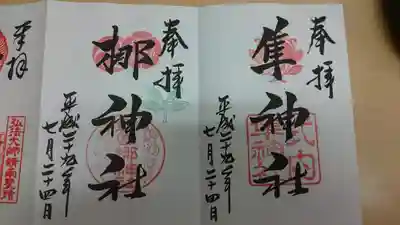 奉拝
隼神社
平成二十九年
七月二十四日
式内
奉拝
梛神社
平成二十九年
七月二十四日
奉拝